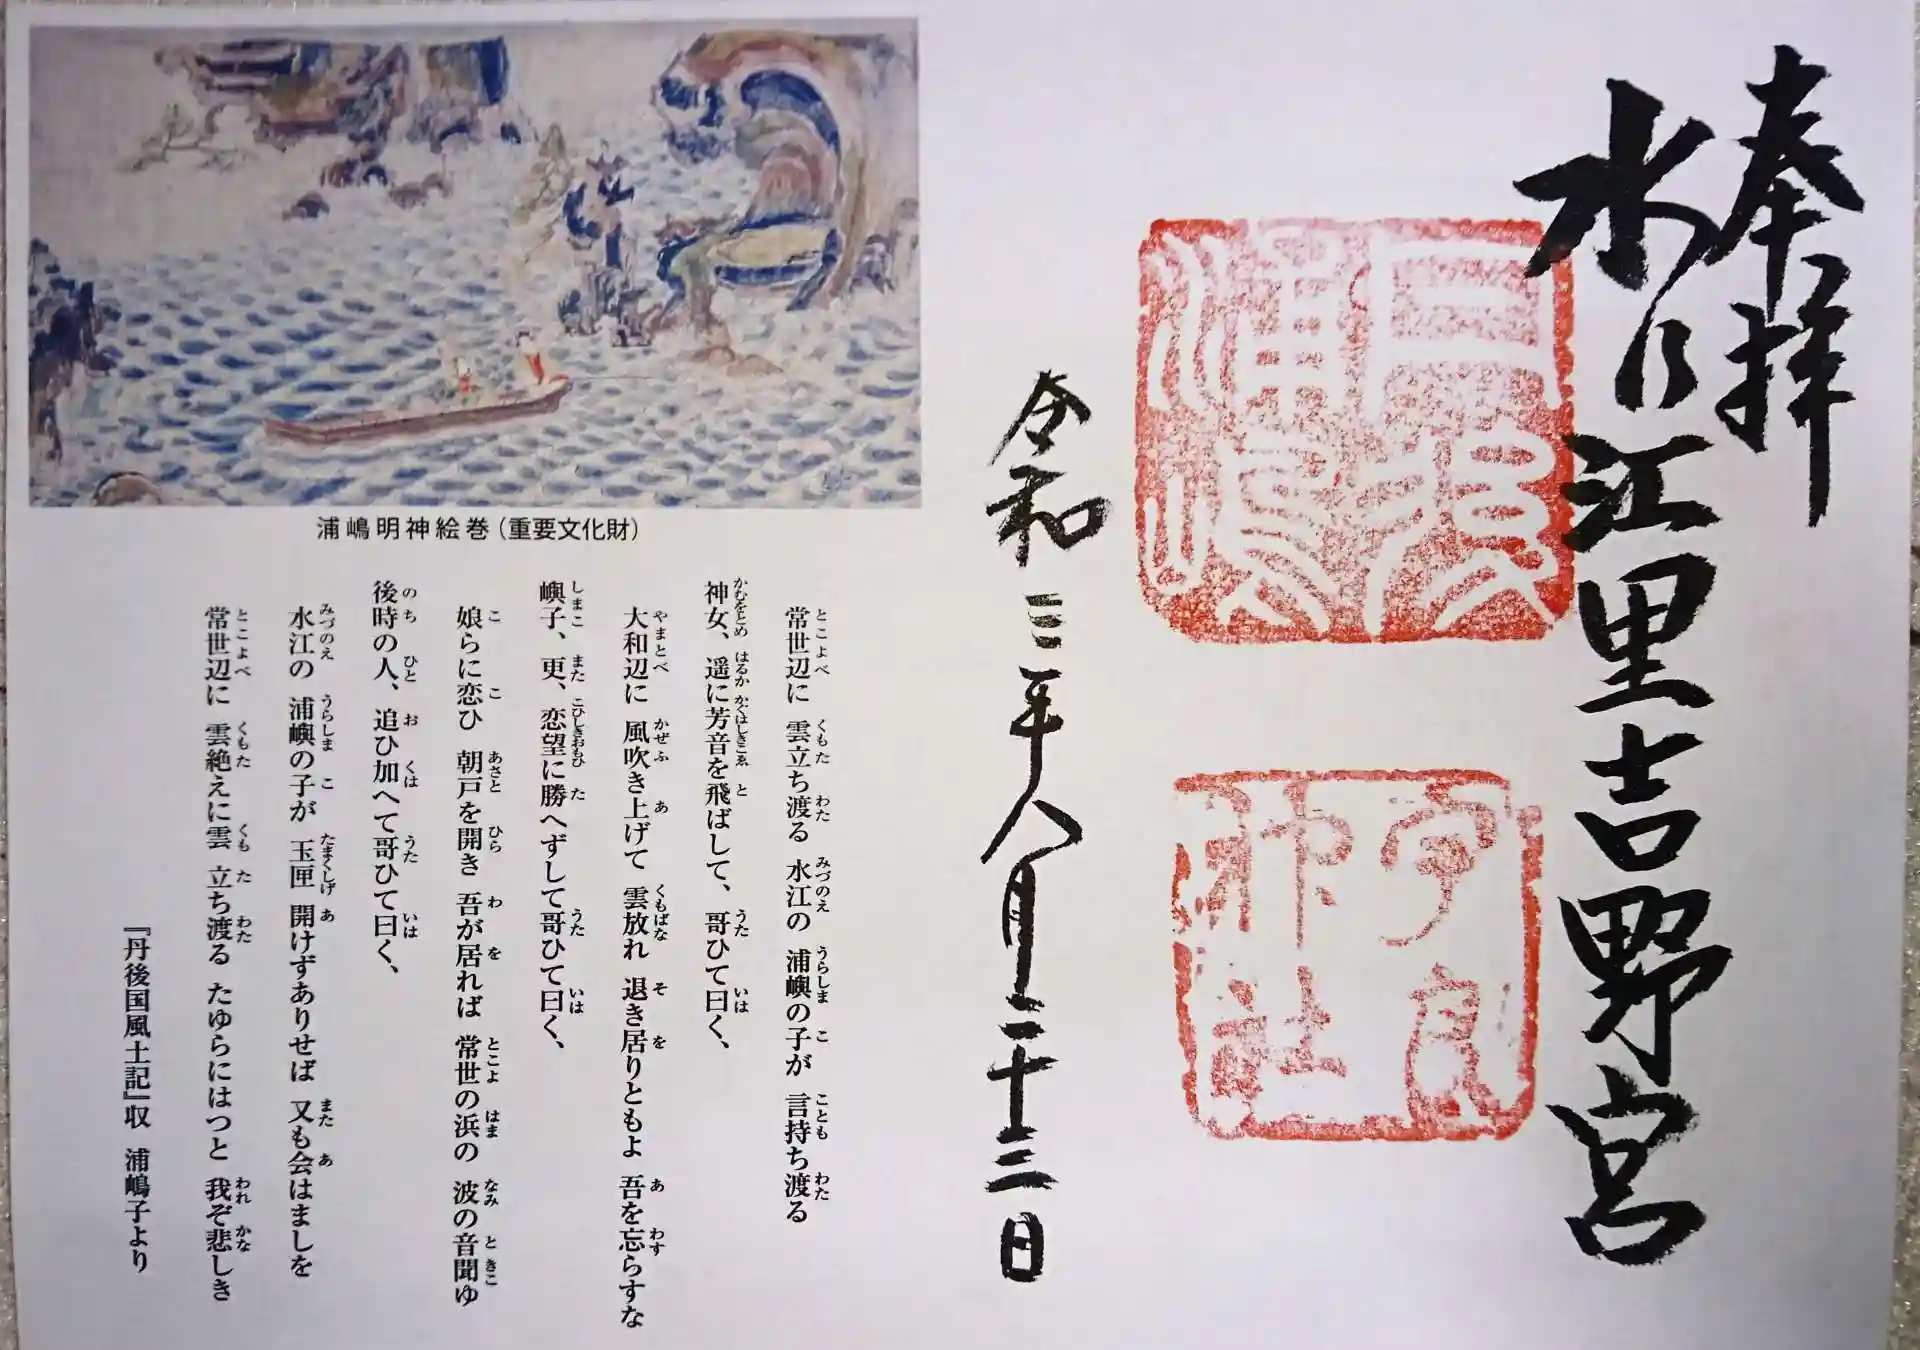 奉拝
水に江里吉野宮
浦嶋
宇良
神社
令和三年八月二十三日
浦嶋明神絵巻（重要文化財）
常世辺に　雲立ち渡る　水江の　浦嶼の子が　言持ち渡る
神女、遥に芳音を飛ばして、哥ひて曰く、
大和辺に　風吹き上げて　雲放れ　退き居りともよ　吾を忘らすな
嶼子、更、恋望に勝へずして哥ひて曰く、
娘らに恋ひ　朝戸を開き　吾が居れば　常世の浜の　波の音聞ゆ
後時の人、追ひ加へて哥ひて曰く、
水江の　浦嶼の子が　玉匣　開けずありせば　又も会はましを
常世辺に　雲絶えに雲　立ち渡る　たゆらにはつと　我ぞ悲しき
『丹後国風土記』収　浦嶋子より